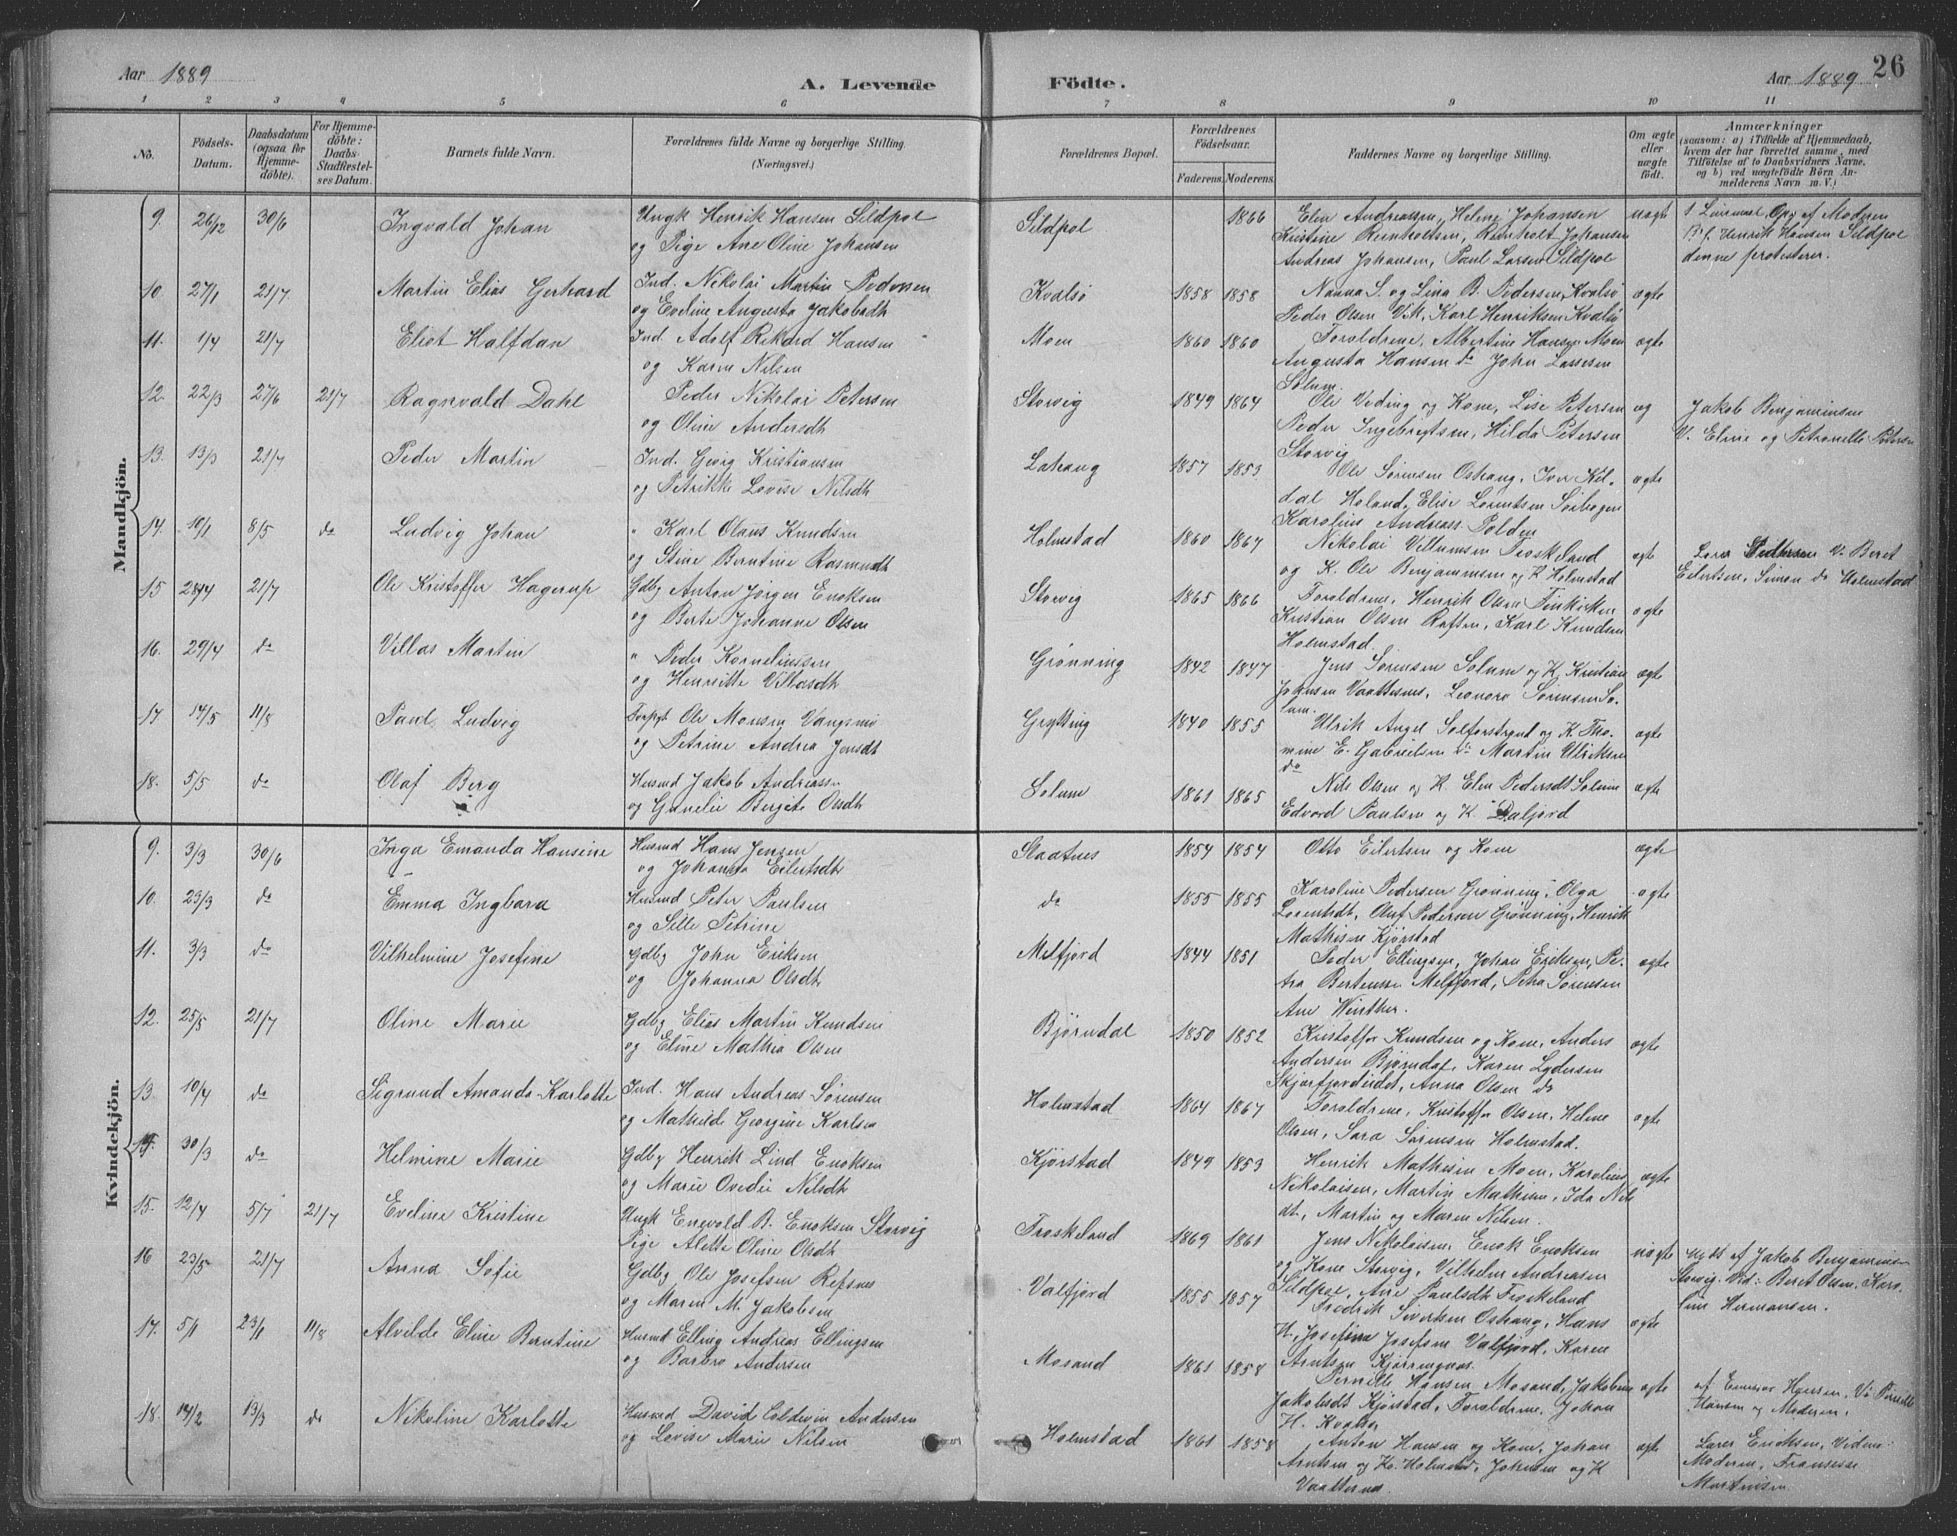 Aar 1889
A. Levende Födte.
Aar 1889
26
1 2 3 4 5 6 7 8 9 10 11
No.
Födsels-Datum.
Daabsdatum (ogsaa for Hjemme-döbte).
For Hjemme-döbte: Daabs-Stadfæstelses Datum.
Barnets fulde Navn.
Forældrenes fulde Navne og borgerlige Stilling.
(Næringsvei.)
Forældrenes Bopæl.
Forældrenes Födselsaar.
Faderens. Moderens.
Faddernes Navne og borgerlige Stilling.
Om ægte eller uægte födt.
Anmærkninger
(saasom: a) i Tilfælde af Hjemmedaab,
hvem der har forrettet samme, med
Tilföielse af to Daabsvidners Navne,
og b) ved uægtefödte Börn An-
melderens Navn m. V.)
Mandkjön.
9. 26/12 30/6 Ingvald Johan
Ungk Henrik Hansen Sildpol
og Pige Ane Oline Johansen
Sildpol 1866
Elen Andreassen, Helene Johansen
Kristine Reinholtsen, Reinholt Johansen
Andreas Johansen, Paul Larsen Sildpol
uægte
Opg af Moderen
B. f. Henrik Hansen Sildpol
denne protesterer.
10. 27/1 21/7 Martin Elias Gerhard
Ind. Nikolai Martin Pedersen
og Eveline Angusta Jakobsdt
Kvalsø 1858 1858
Nanna S. og Lina B. Pedersen, Kvalsø
Peder Olsen Vik, Karl Henriksen Kvalsø
ægte
11. 1/4 21/7 Eliot Halfdan
Ind Adolf Rikard Hansen
og Karen Nilsen
Moen 1860 1860
Forældrene, Albertine Hansen Moen
Augusta Hansen do John Lassesen
Solum.
ægte
12. 22/3 27/6 21/7 Ragnvald Dahl
Peder Nikolai Petersen
og Oline Andersdt
Storvig 1849 1864
Ole Veding og Kone, Lise Petersen
Peder Ingebrigtsen, Hilda Petersen
Storvig
æg
Jakob Benjaminsen
V. Eline og Petronelle Pedersen
13. 13/3 21/7 Peder Martin
Ind. Georg Kristiansen
og Petrikke Lovise Nilsdt
Lahaug 1857 1853
Ole Sørensen Oshaug, Iver Kil-
dal Holand, Elise Lorentsen
Karoline Andreass Polden
ægte
14. 10/1 8/5 do Ludvig Johan
" Karl Olaus Knudsen
og Stine Berntine Rasmusdt
Holmstad 1860 1867
Nikolai Villumsen Froskeland
og K. Ole Benjaminsen og K Holmstad
ægte
Lars Pedersen V. Beret
Eilertsen, Simon do Holmstad
15 28/4 21/7 Ole Kristoffer Hagerup
Gdbg Anton Jørgen Enoksen
og Berte Johanne Olsen
Storvig 1865 1866
Forældrene, Henrik Olsen Finkirken
Kristian Olsen Raften, Karl Knudsen
Holmstad
ægte
16. 29/4 do Villas Martin
" Peder Korneliussen
og Henritte Villasdt
Grønning 1842 1847
Jens Sørensen Solum og K. Kristian
Johnsen Vaattesnes, Leonora Sørensen So-
lum.
ægte
17 14/5 11/8 Paul Ludvig
Forpgt Ole Monsen Vangsnes
og Petrine Andrea Jensdt
Grytting 1840 1855
Ulrik Angel Selforstrand og K. Tho-
mine E. Gabrielsen do Martin Ulriksen
do
ægte
18. 5/5 do Olaf Berg
Husmd Jakob Andreass
og Gunelie Bergite Olsdt
Solum 1861 1865
Nils Olsen og K. Elen Pedersdt Solum
Edvard Paulsen og K. Dalfjord
ægte
Kvindekjön.
9. 3/3 30/6 Inga Emanda Hansine
Husmd Hans Jensen
og Johanna Eilertsdt
Slaatnes 1854 1854
Otto Eilertsen og Kone
ægte
10. 23/3 do Emma Ingbara
Husmd Peter Paulsen
og Sille Petrine
do 1855 1855
Karoline Pedersen Grønning, Olga
Lorentsdt, Oluf Pedersen Grønning, Henrik
Mathisen Kjørstad
ægte
11. 3/3 do Vilhelmine Josefine
Gdbg John Eriksen
og Johanna Olsdt
Melfjord 1844 1851
Peder Ellingsen, Johan Eriksen, Pe-
tra Berteusen Melfjord, Petra Sørensen
Ane Winther.
ægte
12. 25/5 21/7 Oline Marie
Gdbg Elias Martin Knudsen
og Eline Mathea Olsen
Bjørndal 1850 1852
Kristoffer Knudsen og Kone, Anders
Andersen Bjørndal, Karen Lydersen
Skjørfjordeidet, Anna Olsen do
ægte
13. 10/4 do Sigrund Amanda Karlotte
Ind. Hans Andreas Sørensen
og Mathilde Georgine Karlsen
Holmstad 1864 1867
Forældrene, Kristoffer Olsen, Helene
Olsen, Sara Sørensen Holmstad.
ægte
14. 30/3 do Helmine Marie
Gdbg Henrik Lind Enoksen
og Marie Ovedie Nilsdt
Kjørstad 1849 1853
Henrik Mathisen Moen, Karoline
Nikolaisen, Martin Mathisen, Ida Nils
dt, Martin og Maren Nilsen.
ægte
15. 12/4 5/7 21/7 Eveline Kristine
Ungk Enevold B. Enoksen Storvig
Pige Alette Oline Olsdt
Froskeland 1869 1861
Jens Nikolaisen, Enok Enoksen
og Kone Storvig, Vilhelm Andreasen
Sildpol, Ane Paulsdt Froskeland
uægte
af Jakob Benjaminsen
Storvig. Vid: Beret Olsen, Karo
line Hermansen.
16 23/5 21/7 Anna Sofie
Gdbg Ole Josefsen Refsnes
og Maren M. Jakobsen
Valfjord 1855 1857
Fredrik Siverksen Oshaug, Hans
H, Josefine Josefsen Valfjord, Karen
Arntsen Kjørringnes.
ægte
17. 5/1 23/1 11/8 Alvilde Eline Berntine
Husmd Elling Andreas Ellingsen
og Barbro Andersen
Mosand 1861 1858
Pernille Hansen Mosand, Jakobine
Jakobsdt Kjørstad, Forældrene, Johan
H. Kvalsø
ægte
af Hansen, V: Pernille
Hansen og Moderen.
18. 14/2 13/3 do Nikoline Karlotte
Husmd David Andersen
og Lovise Marie Nilsen
Holmstad 1861 1858
Anton Hansen og Kone, Johan
Arntsen og K. Holmstad, Johnsen og K
Vaattesnes
ægte
Lars Eriksen, Vidne:
Moderen, Fransisse
Martinsen.